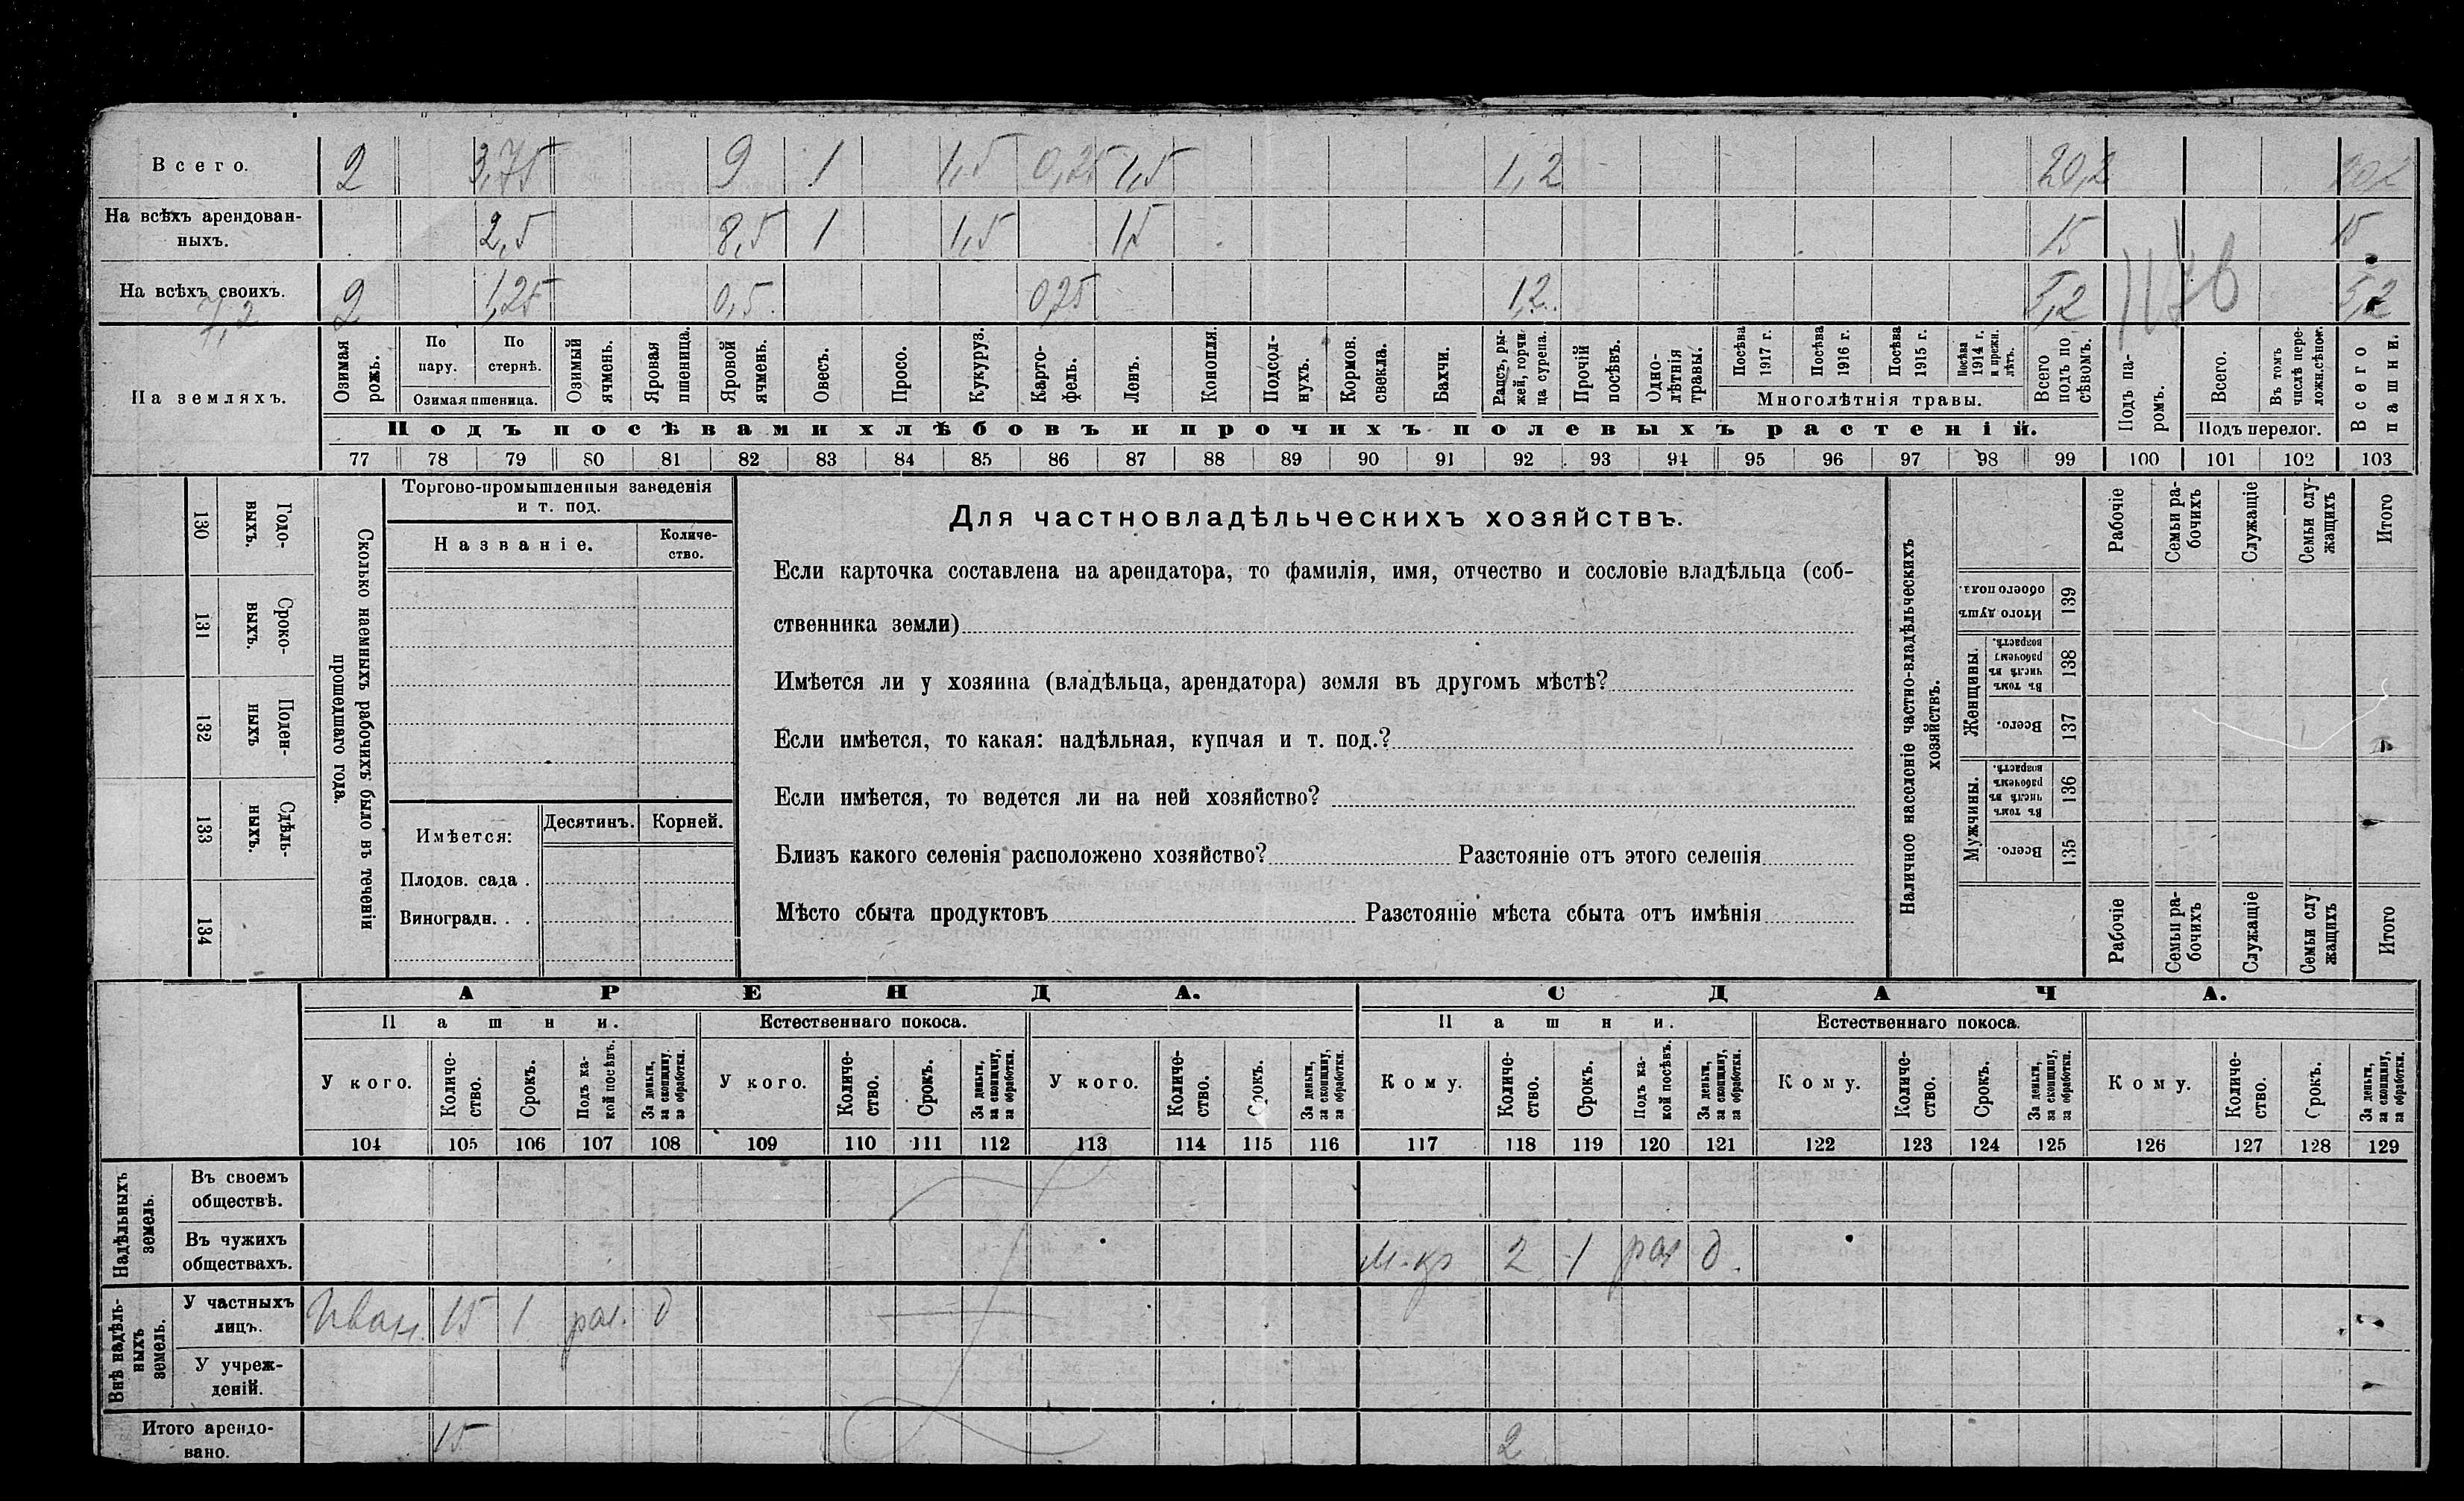 Всего. 2 3,75 9 1 1,5 0,25 1,5 1,2 20,2 20,2
На всѣхъ арендован-
ныхъ. 2,5 8,5 1 1,5 1,5 15 15
На всѣхъ своихъ. 2 1,25 0,5 0,25 1,2 5,2 5,2
7,2
На земляхъ.
Озимая рожь.
По пару.
По стернѣ.
Озимая пшеница.
Озимый ячмень.
Яровая пшеница.
Яровой ячмень.
Овесъ.
Просо.
Кукуруз.
Карто-
фель.
Ленъ.
Конопля.
Подсол-
нухъ.
Кормов. свекла.
Бахчи.
Рапсъ, ры-
жей, горчи
ца сурепа.
Прочій посѣвъ.
Одно-
лѣтнія травы.
Посѣва 1917 г.
Посѣва 1916 г.
Посѣва 1915 г.
Посѣва 1914 г. и прежн. лѣтъ.
Многолѣтнія травы.
Всего подъ по
сѣвомъ.
Подъ па-
ромъ.
Всего.
Въ томъ числѣ пере-
ложн.сѣнок.
Подъ перелог.
Всего пашни.
Подъ посѣвами хлѣбовъ и прочихъ полевыхъ растеній.
77 78 79 80 81 82 83 84 85 86 87 88 89 90 91 92 93 94 95 96 97 98 99 100 101 102 103
130 Годо-
выхъ.
131 Сроко-
выхъ.
132 Поден-
ныхъ
133 Сдѣль-
ныхъ.
134
Сколько наемныхъ рабочихъ было въ теченіи
прошедшаго года.
Торгово-промышленныя заведенія
и т. под.
Названіе. Количе-
ство.
Имѣется: Десятинъ. Корней.
Плодов. сада .
Виноградн. . .
Для частновладѣльческихъ хозяйствъ.
Если карточка составлена на арендатора, то фамилія, имя, отчество и сословіе владѣльца (соб-
ственника земли)
Имѣется ли у хозяина (владѣльца, арендатора) земля въ другомъ мѣстѣ?
Если имѣется, то какая: надѣльная, купчая и т. под.?
Если имѣется, то ведется ли на ней хозяйство?
Близъ какого селенія расположено хозяйство? Разстояніе отъ этого селенія
Мѣсто сбыта продуктовъ Разстояніе мѣста сбыта отъ имѣнія
Наличное населеніе частно-владѣльческихъ
хозяйствъ.
Рабочіе
Семьи ра-
бочихъ
Служащіе
Семьи слу-
жащихъ
Итого
Итого душъ обоего пола. 139
Женщины.
Въ томъ числѣ въ рабочемъ возрастѣ. 138
Всего. 137
Мужчины.
Въ томъ числѣ въ рабочемъ возрастѣ. 136
Всего. 135
Рабочіе
Семьи ра-
бочихъ
Служащіе
Семьи слу
жащихъ
Итого
АРЕНДА. СДАЧА.
Пашни. Естественнаго покоса. Пашни. Естественнаго покоса.
У кого.
Количе-
ство.
Срокъ.
Подъ ка-
кой посѣвъ.
За деньги, за скопщину, за обработки.
У кого.
Количе-
ство.
Срокъ.
За деньги, за скопщину, за обработки.
У кого.
Количе-
ство.
Срокъ.
За деньги, за скопщину, за обработки.
Кому.
Количе-
ство.
Срокъ.
Подъ ка-
кой посѣвъ.
За деньги, за скопщину, за обработки.
Кому.
Количе-
ство.
Срокъ.
За деньги, за скопщину, за обработки.
Кому.
Количе-
ство.
Срокъ.
За деньги, за скопщину, за обработки.
104 105 106 107 108 109 110 111 112 113 114 115 116 117 118 119 120 121 122 123 124 125 126 127 128 129
Надѣльныхъ земель.
Въ своемъ
обществѣ.
Въ чужихъ
обществахъ. 2 1 раз д.
Внѣ надѣль-
ныхъ земель.
У частныхъ
лицъ. Иван. 15 1 раз. д
У учреж-
деній.
Итого арендо-
вано. 15 2